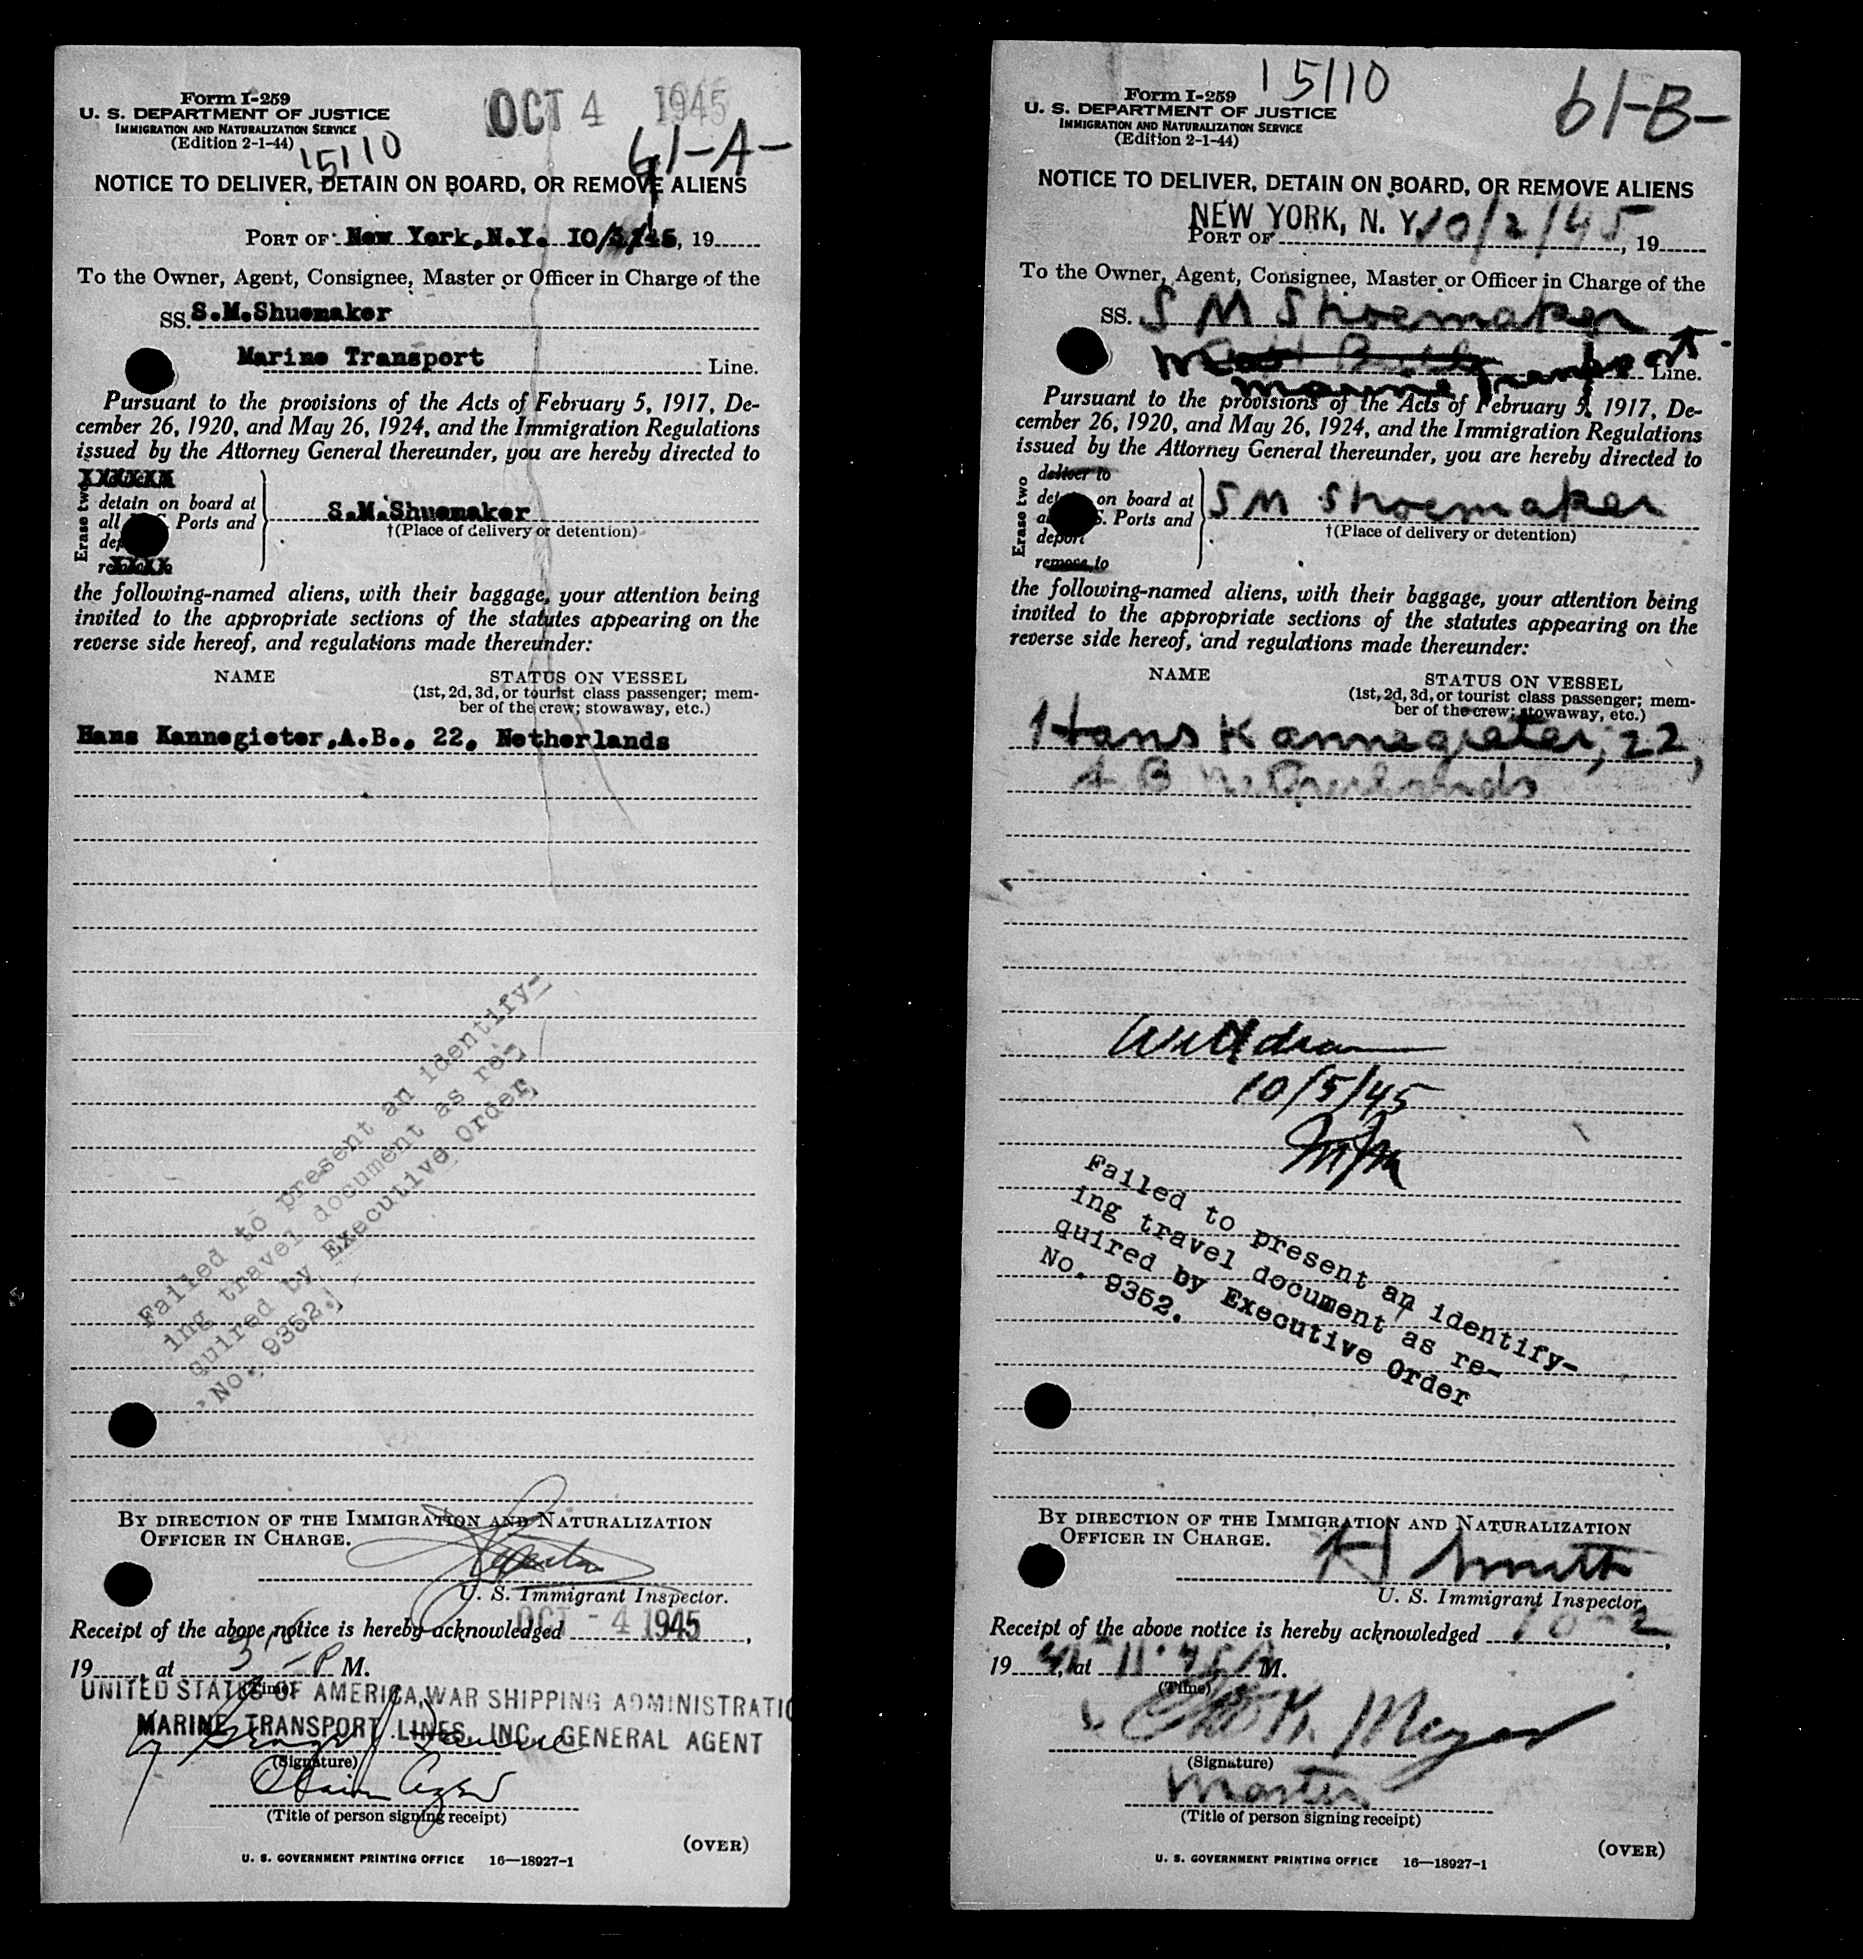 Form I-259
U. S. DEPARTMENT OF JUSTICE
IMMIGRATION AND NATURALIZATION SERVICE
(Edition 2-1-44)
OCT 4 1945
15110
61-A-
NOTICE TO DELIVER, DETAIN ON BOARD, OR REMOVE ALIENS
PORT OF New York, N.Y. 10/ /45, 19
To the Owner, Agent, Consignee, Master or Officer in Charge of the
SS. S.M.Shuemaker
Marine Transport Line.
Pursuant to the provisions of the Acts of February 5, 1917, De-
cember 26, 1920, and May 26, 1924, and the Immigration Regulations
issued by the Attorney General thereunder, you are hereby directed to
Erase two
XXXXXX
detain on board at
all Ports and
S.M.Shuemaker
†(Place of delivery or detention)
the following-named aliens, with their baggage, your attention being
invited to the appropriate sections of the statutes appearing on the
reverse side hereof, and regulations made thereunder:
NAME STATUS ON VESSEL
(1st, 2d, 3d, or tourist class passenger; mem-
ber of the crew; stowaway, etc.)
Hans Kannegieter,A.B., 22, Netherlands
Failed to present an identify-
ing travel document as re-
quired by Executive Order
No. 9352.
BY DIRECTION OF THE IMMIGRATION AND NATURALIZATION
OFFICER IN CHARGE.
U. S. Immigrant Inspector.
Receipt of the above notice is hereby acknowledged OCT - 4 1945,
19 , at 3 P M.
(Time)
UNITED STATES OF AMERICA, WAR SHIPPING ADMINISTRATIO
MARINE TRANSPORT LINES, INC. GENERAL AGENT
by
(Signature)
(Title of person signing receipt)
(OVER)
U. S. GOVERNMENT PRINTING OFFICE 16—18927-1
Form I-259
15110
U. S. DEPARTMENT OF JUSTICE
IMMIGRATION AND NATURALIZATION SERVICE
(Edition 2-1-44)
61-B-
NOTICE TO DELIVER, DETAIN ON BOARD, OR REMOVE ALIENS
NEW YORK, N. Y. 10/2/45
PORT OF , 19
To the Owner, Agent, Consignee, Master or Officer in Charge of the
SS. S M Shoemaker
Line.
Marine Transport
Pursuant to the provisions of the Acts of February 5, 1917, De-
cember 26, 1920, and May 26, 1924, and the Immigration Regulations
issued by the Attorney General thereunder, you are hereby directed to
Erase two
deliver to
on board at
S. Ports and
deport
remove to
S M Shoemaker
†(Place of delivery or detention)
the following-named aliens, with their baggage, your attention being
invited to the appropriate sections of the statutes appearing on the
reverse side hereof, and regulations made thereunder:
NAME STATUS ON VESSEL
(1st, 2d, 3d, or tourist class passenger; mem-
ber of the crew; stowaway, etc.)
Hans Kannegieter, 22,
A B Netherlands
Withdrawn
10/5/45
Failed to present an identify-
ing travel document as re-
quired by Executive Order
No. 9352.
BY DIRECTION OF THE IMMIGRATION AND NATURALIZATION
OFFICER IN CHARGE.
H Smith
U. S. Immigrant Inspector.
Receipt of the above notice is hereby acknowledged 10-2,
19 45, at 11:45 A M.
(Time)
K. Meyer
(Signature)
Master
(Title of person signing receipt)
(OVER)
U. S. GOVERNMENT PRINTING OFFICE 16—18927-1